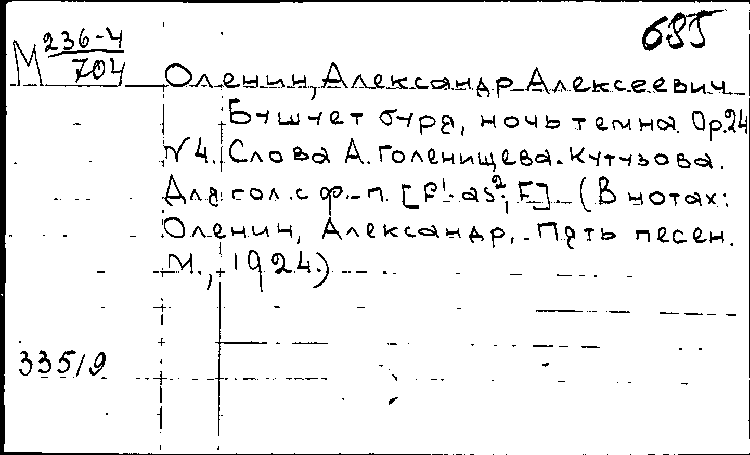 685
М 236-4/704
Оленин, Александр Алексеевич
Бушует буря, ночь темна. Op.24
N 4. Слова А. Голенищева-Кутузова.
Для гол. с ф.-п. [f¹-as²; F] (В нотах:
Оленин, Александр. Пять песен.
М., 1924.)
335/9